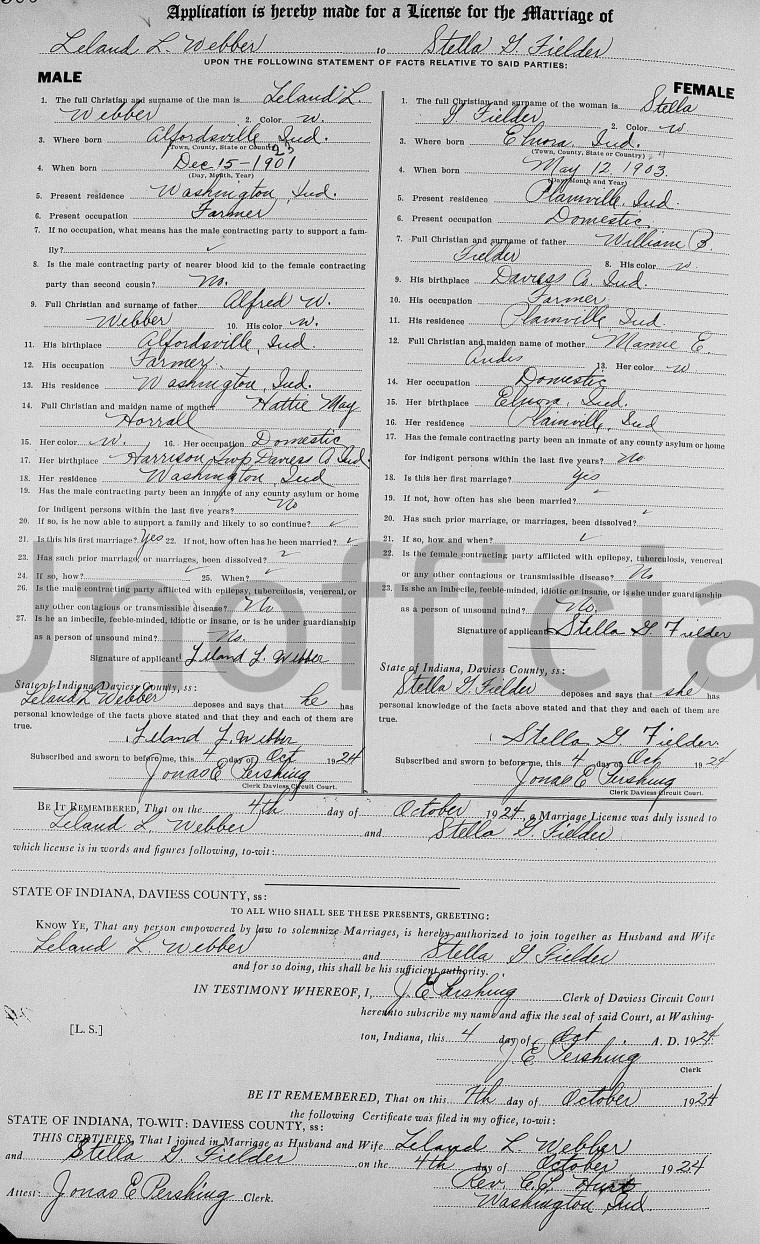 Application is hereby made for a License for the Marriage of
Leland L. Webber to Stella G. Fielder
UPON THE FOLLOWING STATEMENT OF FACTS RELATIVE TO SAID PARTIES:
MALE
1. The full Christian and surname of the man is Leland L.
Webber 2. Color w.
3. Where born Alfordsville, Ind.
(Town, County, State or Country)
23
4. When born Dec 15-1901
(Day, Month, Year)
5. Present residence Washington, Ind.
6. Present occupation Farmer
7. If no occupation, what means has the male contracting party to support a fam-
ily? ✓
8. Is the male contracting party of nearer blood kid to the female contracting
party than second cousin? No.
9. Full Christian and surname of father Alfred W.
Webber 10. His color w.
11. His birthplace Alfordsville, Ind.
12. His occupation Farmer.
13. His residence Washington, Ind.
14. Full Christian and maiden name of mother Hattie May
Horrall
15. Her color w. 16. Her occupation Domestic
17. Her birthplace Harrison Twp Daviess Co Ind.
18. Her residence Washington, Ind
19. Has the male contracting party been an inmate of any county asylum or home
for indigent persons within the last five years? No
20. If so, is he now able to support a family and likely to so continue? ✓
21. Is this his first marriage? Yes 22. If not, how often has he been married? ✓
23. Has such prior marriage, or marriages, been dissolved? ✓
24. If so, how? ✓ 25. When? ✓
26. Is the male contracting party afflicted with epilepsy, tuberculosis, venereal, or
any other contagious or transmissible disease? No.
27. Is he an imbecile, feeble-minded, idiotic or insane, or is he under guardianship
as a person of unsound mind? No.
Signature of applicant Leland L. Webber
State of Indiana, Daviess County, ss:
Leland L. Webber deposes and says that he has
personal knowledge of the facts above stated and that they and each of them are
true.
Leland L. Webber
Subscribed and sworn to before me, this 4 day of Oct 1924
Jonas E Pershing
Clerk Daviess Circuit Court.
FEMALE
1. The full Christian and surname of the woman is Stella
G Fielder 2. Color w
3. Where born Elnora, Ind.
(Town, County, State or Country)
4. When born May 12 1903.
(Day, Month and Year)
5. Present residence Plainville, Ind.
6. Present occupation Domestic
7. Full Christian and surname of father William B.
Fielder 8. His color w.
9. His birthplace Daviess Co. Ind.
10. His occupation Farmer
11. His residence Plainville, Ind.
12. Full Christian and maiden name of mother Mamie E.
Andis 13. Her color w
14. Her occupation Domestic
15. Her birthplace Elnora, Ind.
16. Her residence Plainville, Ind
17. Has the female contracting party been an inmate of any county asylum or home
for indigent persons within the last five years? No
18. Is this her first marriage? Yes
19. If not, how often has she been married? ✓
20. Has such prior marriage, or marriages, been dissolved? ✓
21. If so, how and when? ✓
22. Is the female contracting party afflicted with epilepsy, tuberculosis, venereal
or any other contagious or transmissible disease? No
23. Is she an imbecile, feeble-minded, idiotic or insane, or is she under guardianship
as a person of unsound mind? No.
Signature of applicant Stella G. Fielder
State of Indiana, Daviess County, ss:
Stella G. Fielder deposes and says that she has
personal knowledge of the facts above stated and that they and each of them are
true.
Stella G. Fielder
Subscribed and sworn to before me, this 4 day of Oct 1924
Jonas E Pershing
Clerk Daviess Circuit Court.
Unofficia
BE IT REMEMBERED, That on the 4th day of October 1924, a Marriage License was duly issued to
Leland L. Webber and Stella G. Fielder
which license is in words and figures following, to-wit:
STATE OF INDIANA, DAVIESS COUNTY, ss:
TO ALL WHO SHALL SEE THESE PRESENTS, GREETING:
KNOW YE, That any person empowered by law to solemnize Marriages, is hereby authorized to join together as Husband and Wife
Leland L Webber and Stella G Fielder
and for so doing, this shall be his sufficient authority.
IN TESTIMONY WHEREOF, I, J. E Pershing Clerk of Daviess Circuit Court
hereunto subscribe my name and affix the seal of said Court, at Washing-
[L. S.] ton, Indiana, this 4 day of Oct. A. D. 1924
J. E. Pershing
Clerk
BE IT REMEMBERED, That on this 7th day of October 1924
the following Certificate was filed in my office, to-wit:
STATE OF INDIANA, TO-WIT: DAVIESS COUNTY, ss:
THIS CERTIFIES, That I joined in Marriage as Husband and Wife Leland L. Webber
and Stella G Fielder on the 4th day of October 1924
Rev. E. L. Hurt
Washington Ind.
Attest: Jonas E Pershing Clerk.